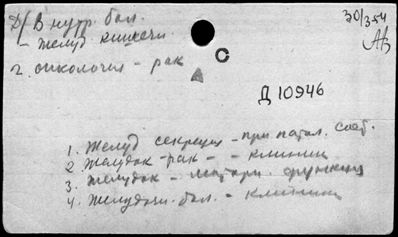 Д/ Внутр. бол.
30/354
- желуд. кишечн.
АВ
С
2. онкология - рак
Д 10946
1. Желуд. секреция - при патол. сост.
2. Желудок - рак - - клиник
3. Желудок - функция
4. Желудочн. бол. - клиник